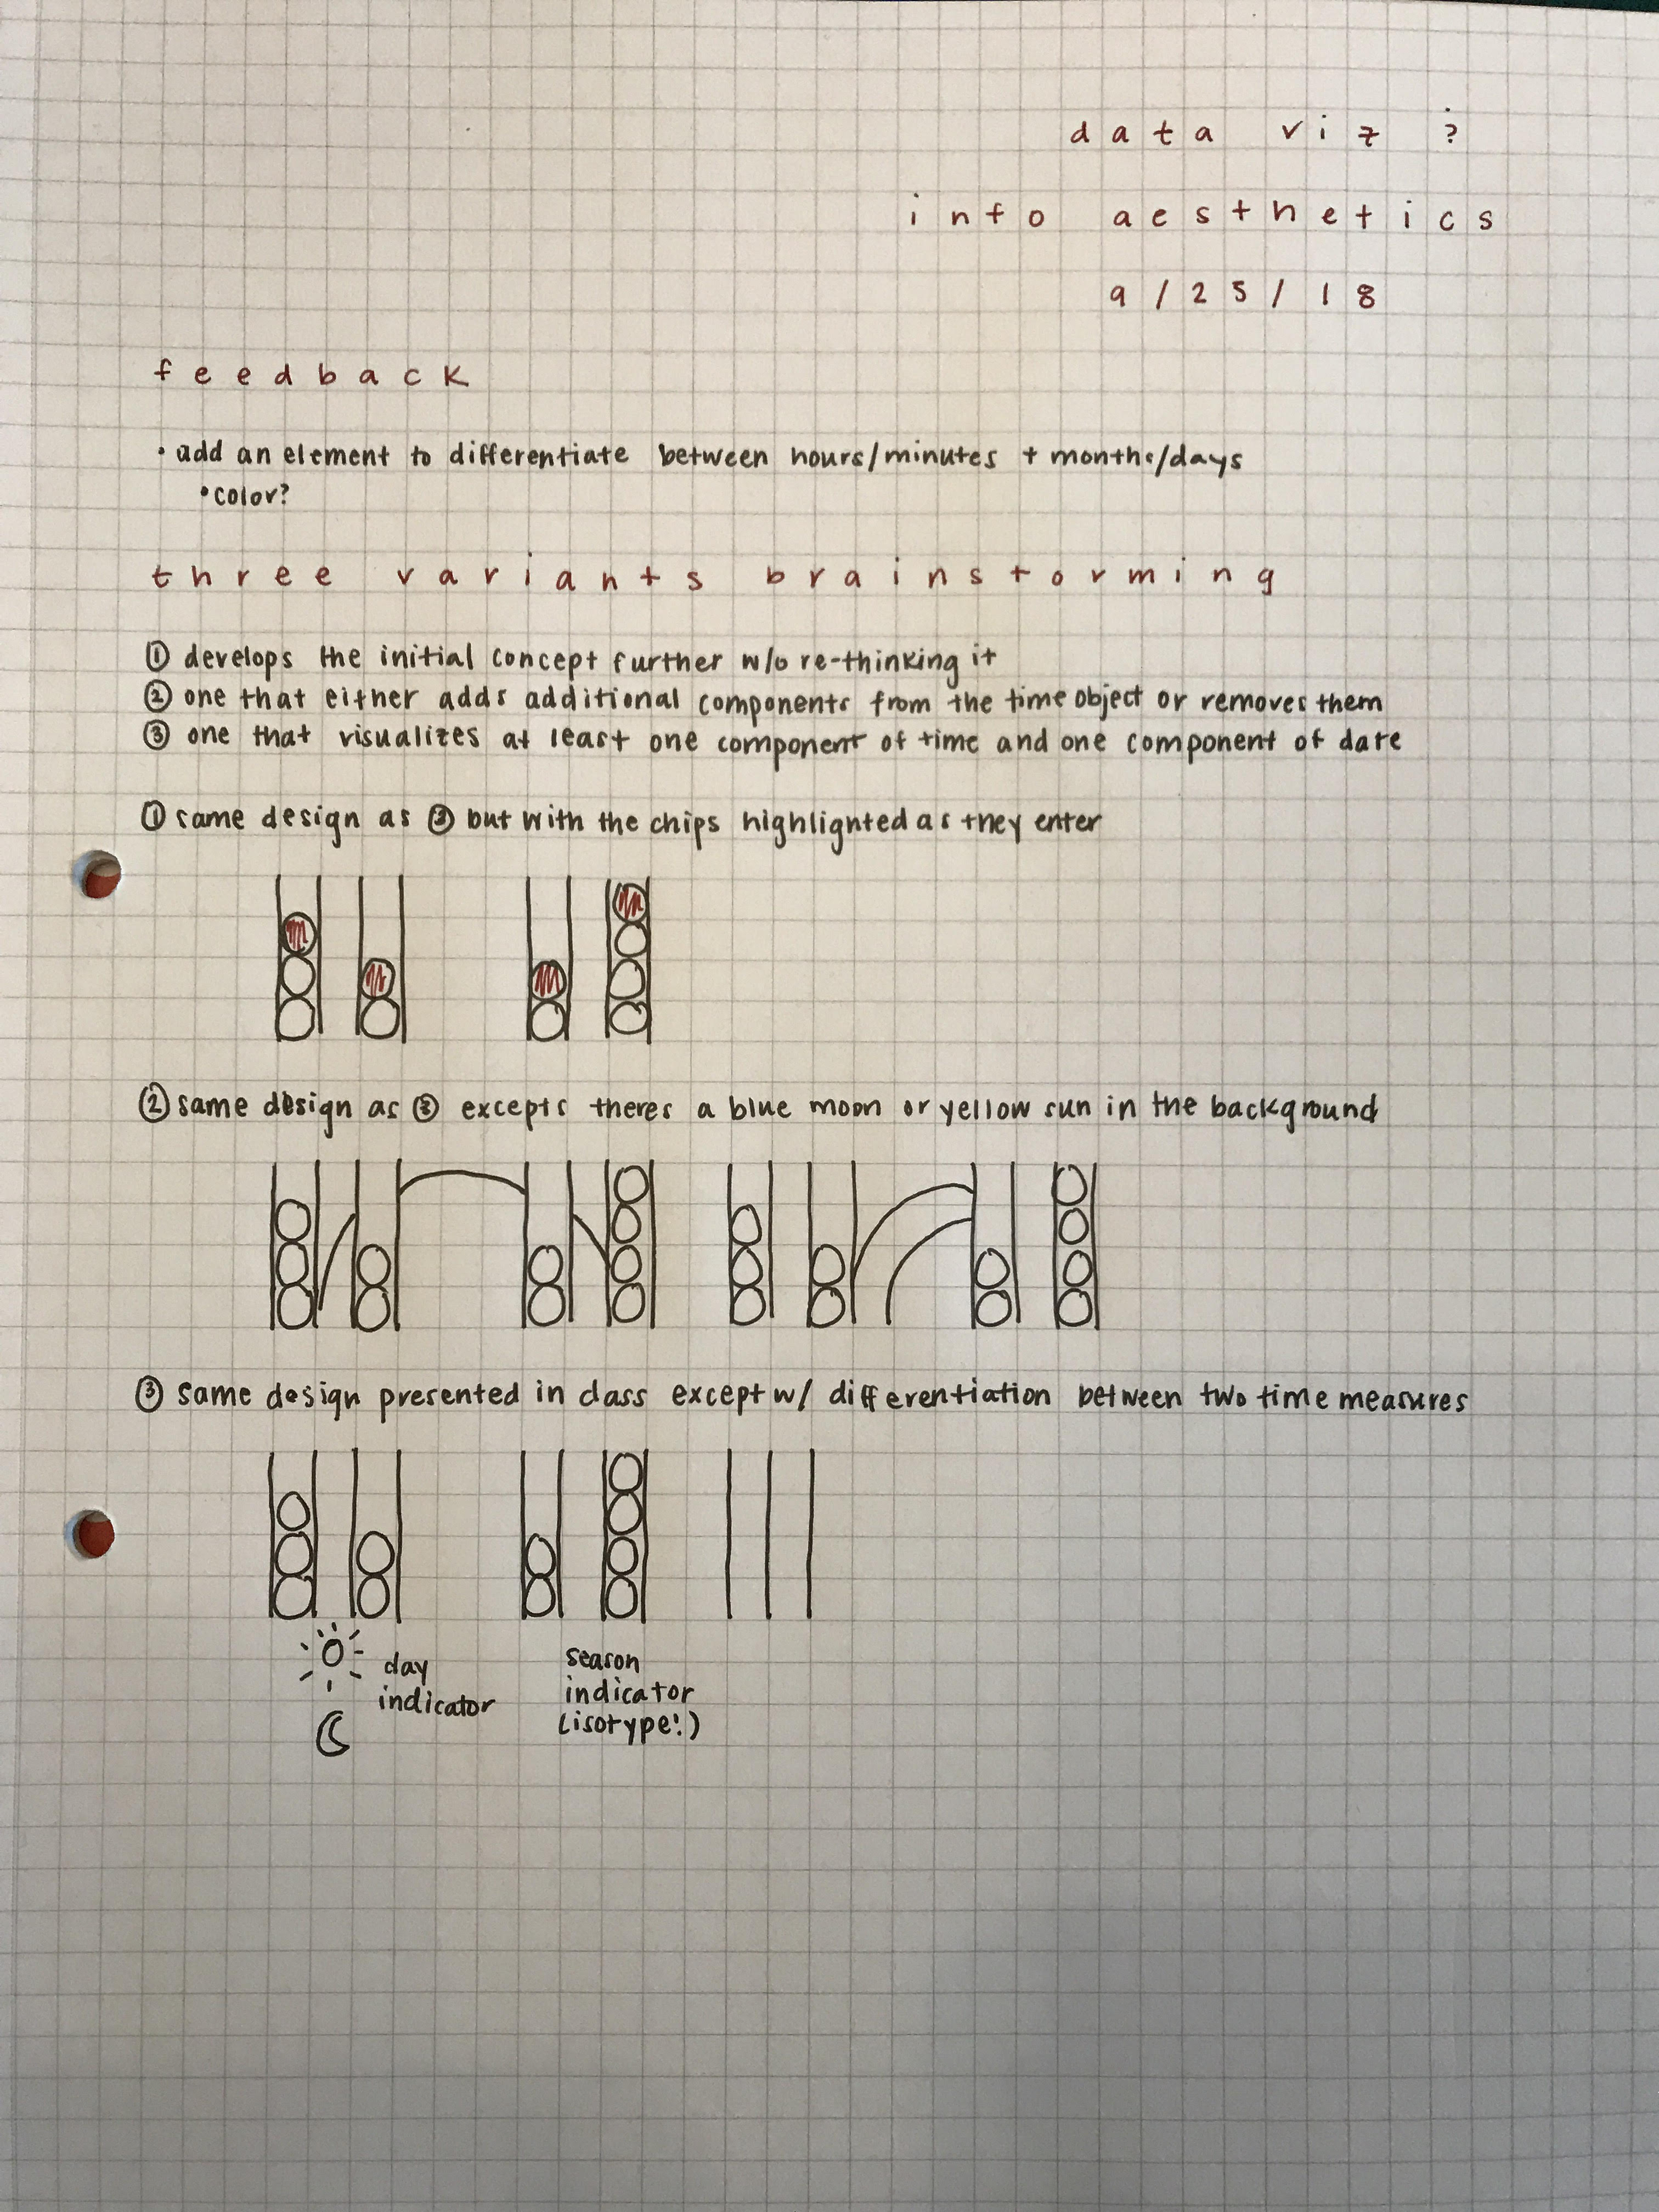 data viz ?
info aesthetics
9/25/18
feedback
• add an element to differentiate between hours/minutes + months/days
• color?
three variants brainstorming
① develops the initial concept further w/o re-thinking it
② one that either adds additional components from the time object or removes them
③ one that visualizes at least one component of time and one component of date
① same design as ③ but with the chips highlighted as they enter
② same design as ③ excepts theres a blue moon or yellow sun in the background
③ same design presented in class except w/ differentiation between two time measures
day
indicator
season
indicator
(isotype!)